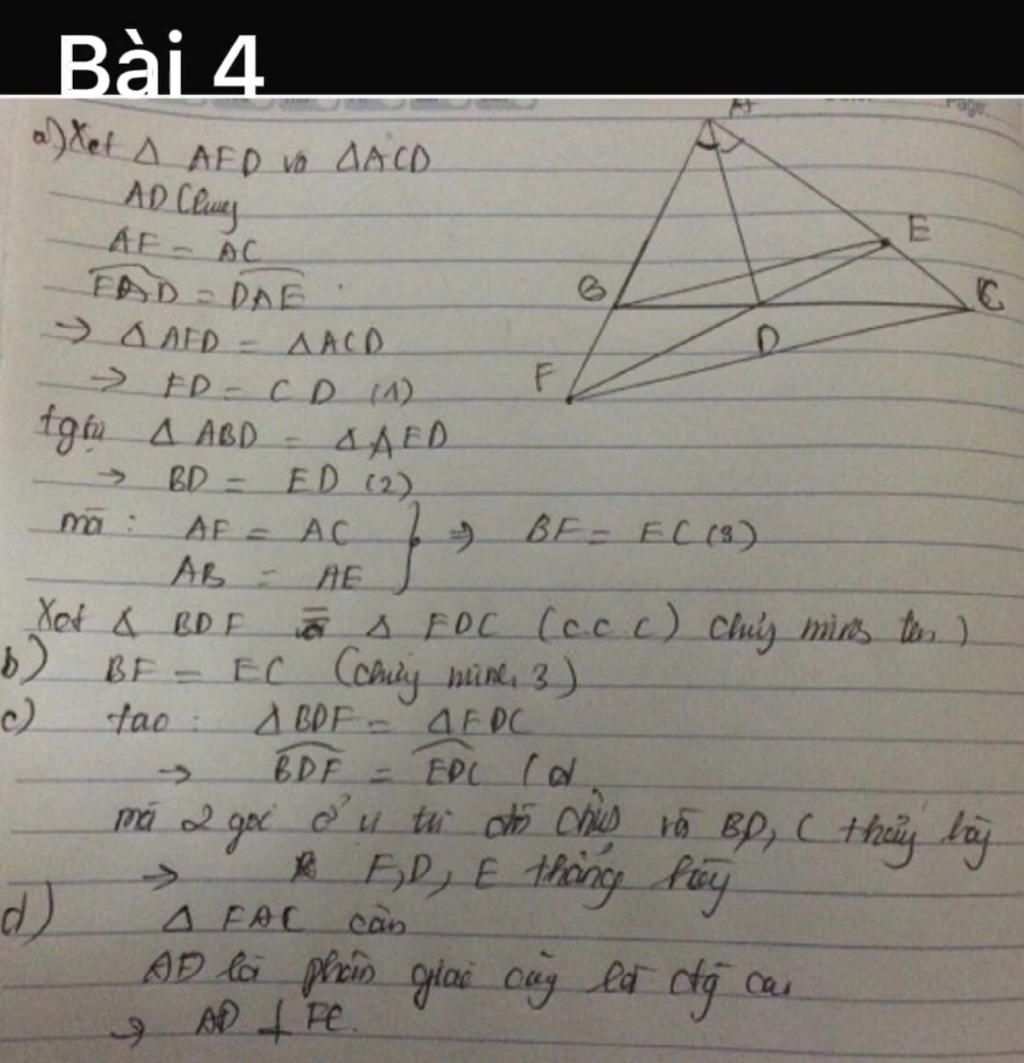 Bài 4
Page
a) Xet Δ AFD và ΔACD
AD Chung
AF = AC
FAD = DAE
→ Δ AFD = ΔACD
→ FD = CD (1)
Δ ABD = ΔAED
→ BD = ED (2)
mà : AF = AC
AB = AE
⇒ BF = EC (3)
Xet Δ BDF = Δ EDC (c.c.c) chứng minh trên)
b) BF = EC (chứng minh 3)
c) tao : ΔBDF = ΔEDC
→ BDF = EDC
mà 2 góc ở vị trí đối đỉnh và B,D, C thẳng hàng
→ F,D, E thẳng hàng
d) Δ FAC cân
AD là phân giác cũng là đg cao
→ AD ⊥ FC.
A
B
C
D
E
F